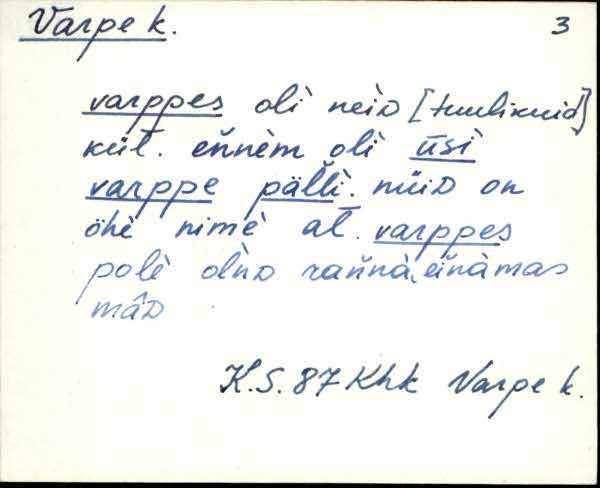 Varpe k. 3
varppes oli neiᴅ [tuulikuid]
küt̄. eňnèm oli ūsì
varppe pält̆tì. nüiᴅ on
öhè nimè al̄. varppes
polè olǹᴅ raňnà, eiňàmas
mâᴅ
K.S. 87 Khk Varpe k.